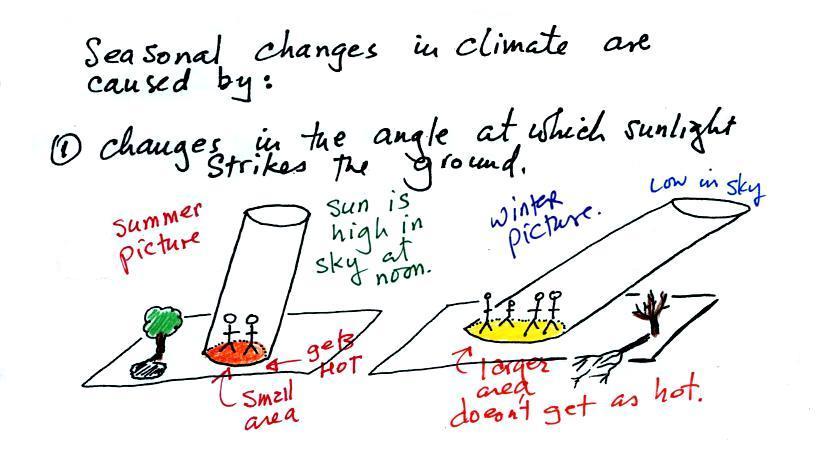 Seasonal changes in climate are
caused by:
① changes in the angle at which sunlight
strikes the ground.
summer
picture
sun is
high in
sky at
noon.
winter
picture.
Low in sky
gets
HOT
small
area
larger
area,
doesn't get as hot.